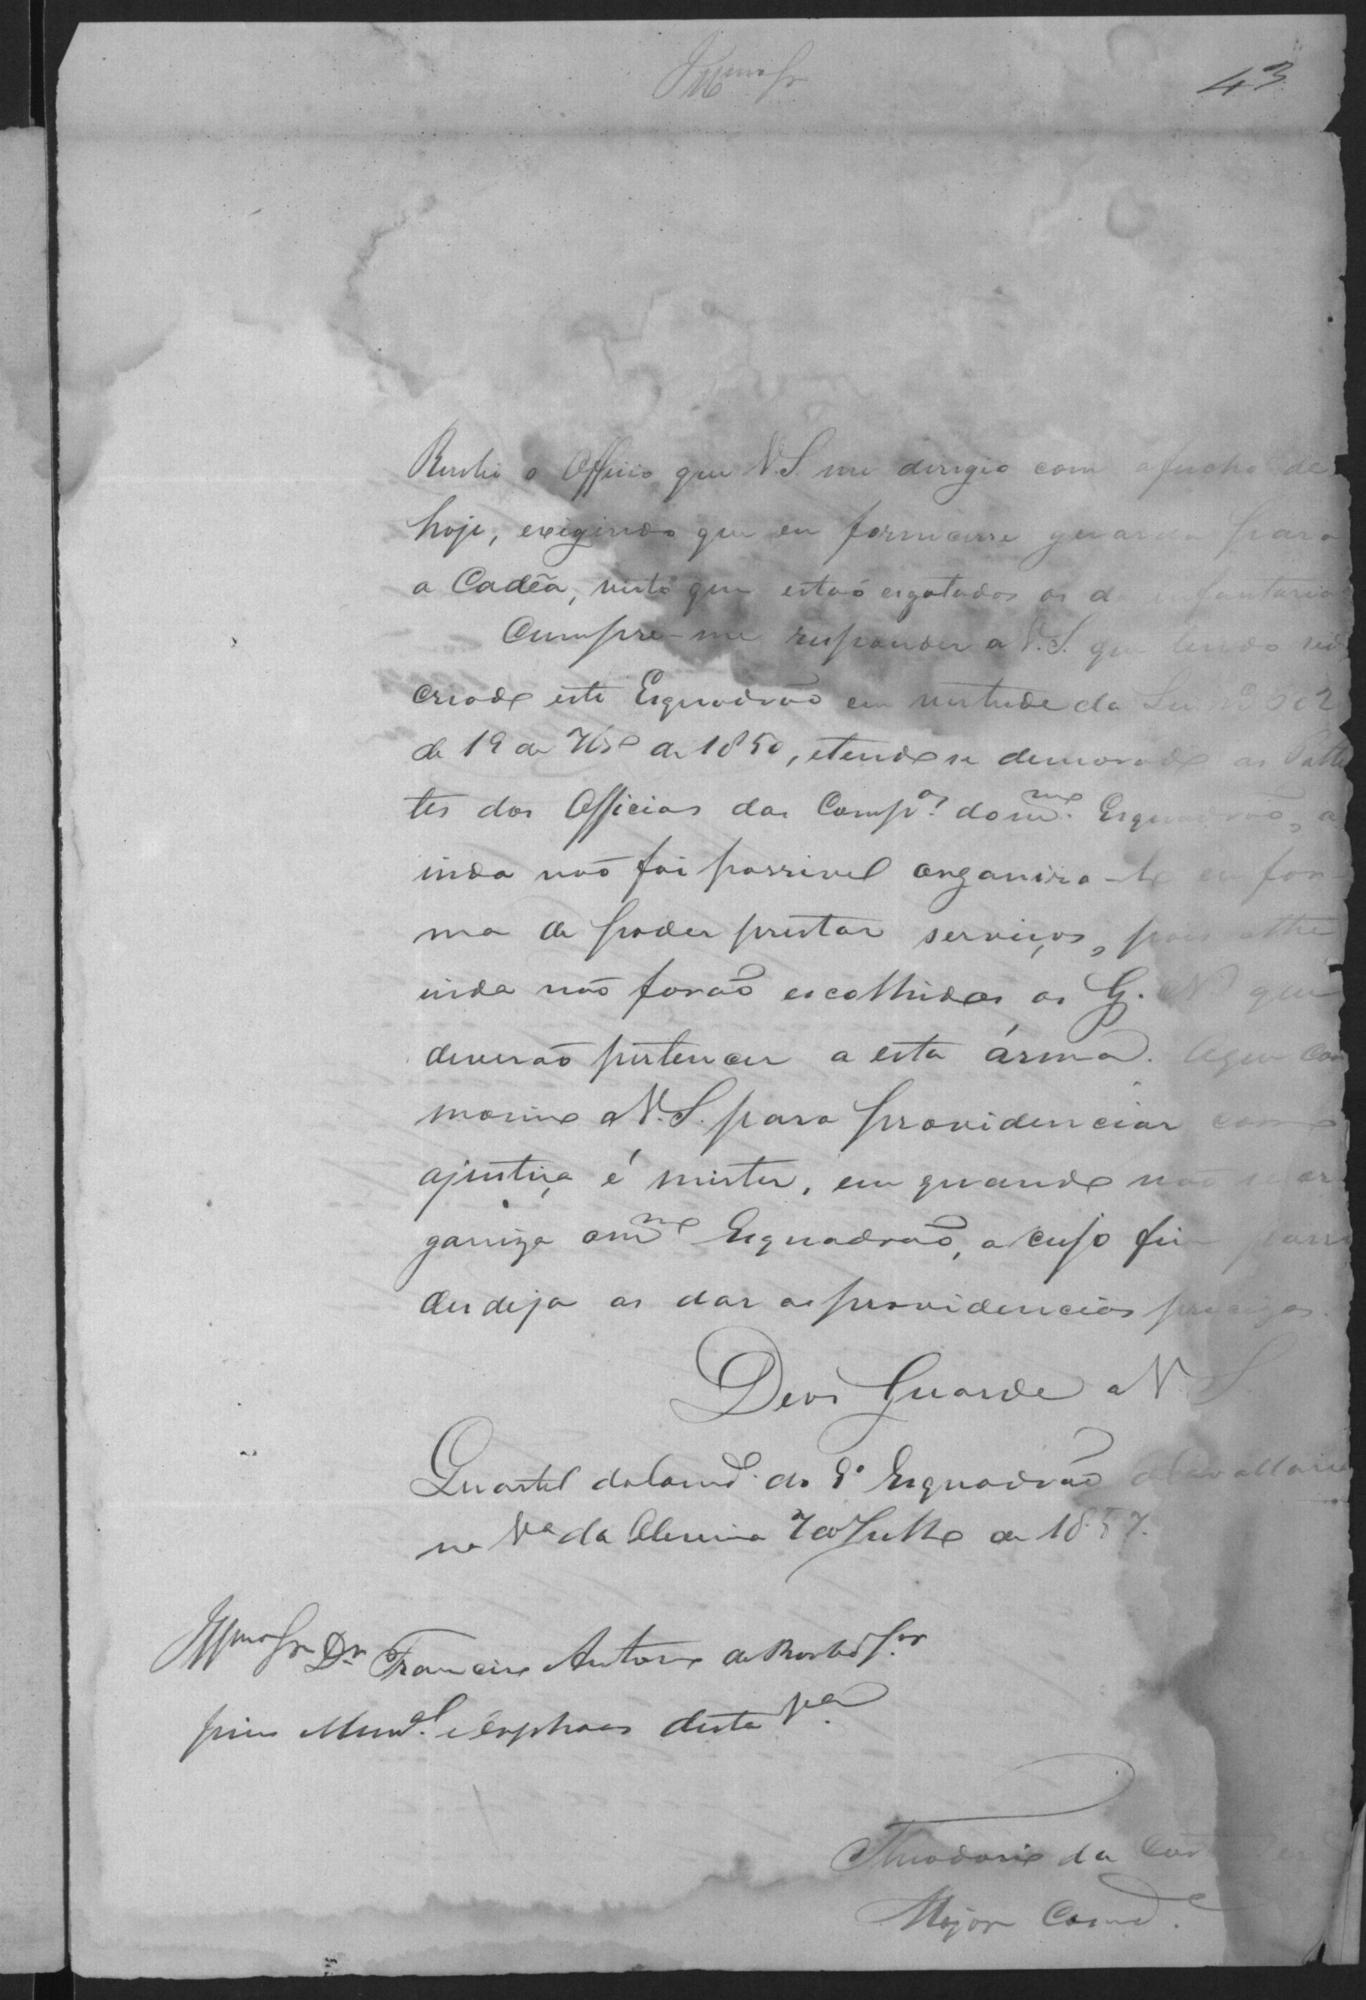 Illmo Sr
43
Recebi o Officio que V.S. me dirigio com afecha de
hoje, exigindo que eu formasse guarda para
a Cadêa, visto que estaõ esgotados os da infantaria
Cumpre-me responder a V.S. que tendo sido
criado este Esquadrão em virtude da Lei Nº 602
de 19 de 7bro de 1850, etendo se demorado as Patte
tes dos Officias das Compas. do mmo. Esquadrão, a
inda não foi possivel organiza-lo em for-
ma de poder prestar serviços, pois
inda não forão escolhidos os G. N. que
deverão pertencer a esta árma. Oque com
monico a V.S. para providenciar como
ajustiça é mister, em quando não se or
ganiza o mmo Esquadrão, a cujo fim
desdeja as dar as providencias precizas.
Deos Guarde a V. S.
Quartel do Comdo. do 8º Esquadrão de Cavallaria
na Va da 7 de Julho de 1857.
Illmo Sr Dr Francisco Antonio de
Munal. e Orphaos desta Va.
Theodorio da
Major Comde.